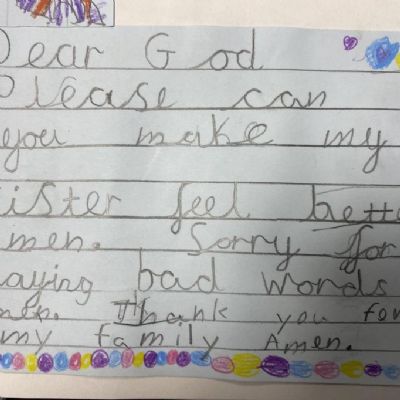 Dear God
Please can
you make my
sister feel bette
men. Sorry for
aying bad words
men. Thank you for
my family Amen.